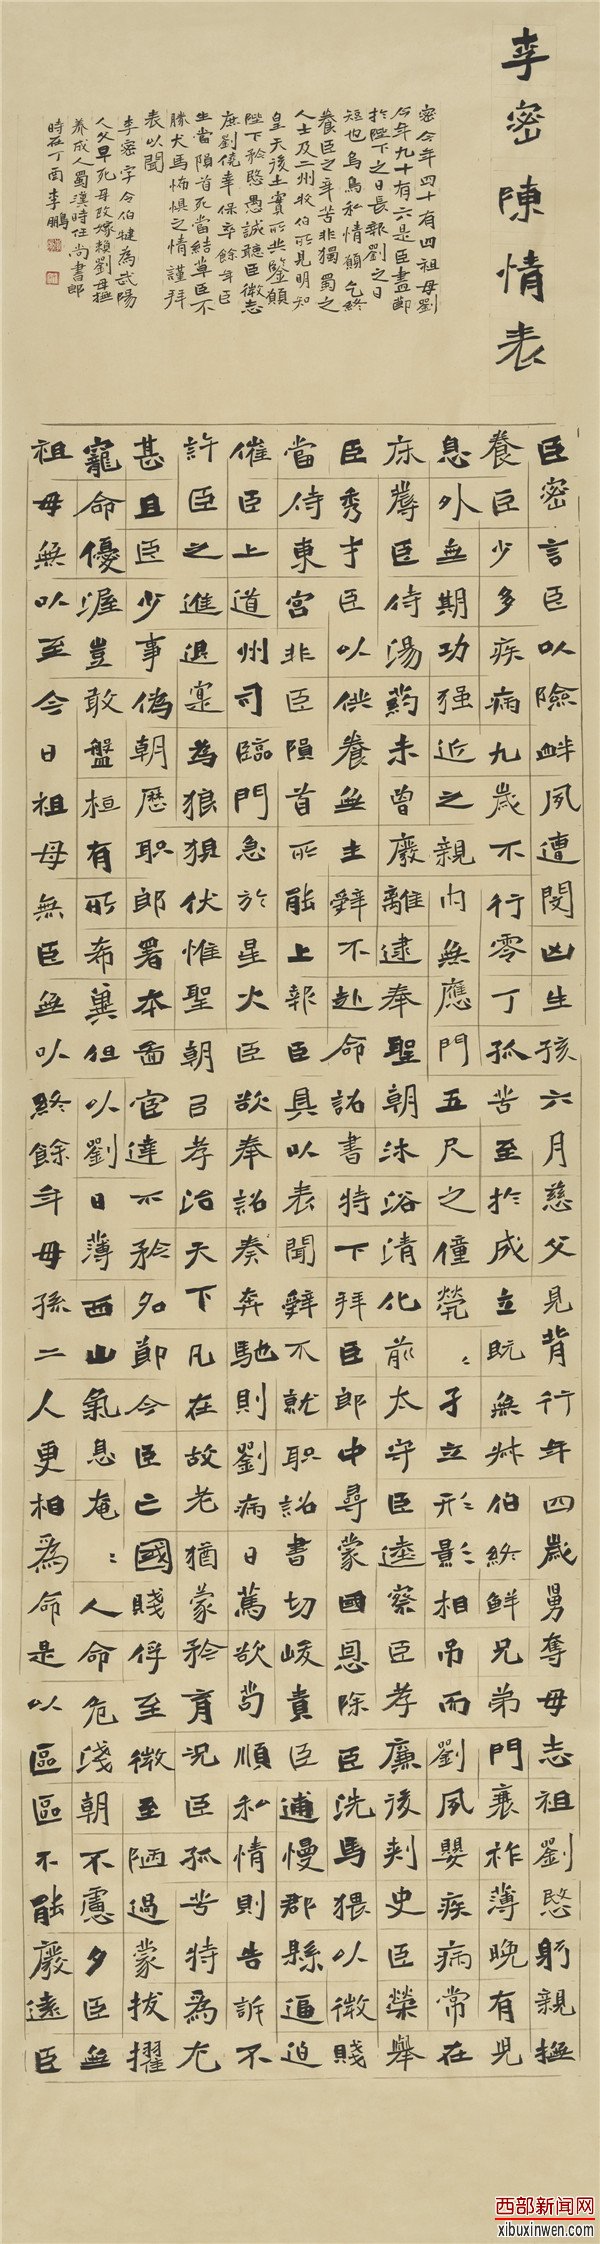 李密陳情表
臣密言臣以險衅夙遭閔凶生孩六月慈父見背行年四歲舅奪母志祖劉愍躬親撫
養臣少多疾病九歲不行零丁孤苦至於成立既無叔伯終鮮兄弟門衰祚薄晚有兒
息外無期功强近之親內無應門五尺之僮煢〻孑立形影相吊而劉夙嬰疾病常在
床蓐臣侍湯藥未曾廢離逮奉聖朝沐浴清化前太守臣逵察臣孝廉後刺史臣榮舉
臣秀才臣以供養無主辭不赴命詔書特下拜臣郎中尋蒙國恩除臣洗馬猥以微賤
當侍東宮非臣隕首所能上報臣具以表聞辭不就職詔書切峻責臣逋慢郡縣逼迫
催臣上道州司臨門急於星火臣欲奉詔奏奔馳則劉病日篤欲苟順私情則告訴不
許臣之進退寔為狼狽伏惟聖朝㠯孝治天下凡在故老猶蒙矜育況臣孤苦特為尤
甚且臣少事偽朝歷职郎署本啚宦達不矜名節今臣亡國賤俘至微至陋過蒙拔擢
寵命優渥豈敢盤桓有所希冀但以劉日薄西山氣息奄〻人命危淺朝不慮夕臣無
祖母無以至今日祖母無臣無以終餘年母孫二人更相為命是以區區不能廢遠臣
密今年四十有四祖母劉
今年九十有六是臣盡節
於陛下之日長報劉之日
短也烏鳥私情願乞終
養臣之辛苦非獨蜀之
人士及二州牧伯所見明知
皇天後土實所共鑒願
陛下矜愍愚誠聽臣微志
庶劉僥幸保卒餘年臣
生當隕首死當結草臣不
勝犬馬怖懼之情謹拜
表以聞
李密字令伯犍為武陽
人父早死母改嫁賴劉母撫
養成人蜀漢時任尚書郎
時在丁酉李鵬
西部新闻网
xibuxinwen.com